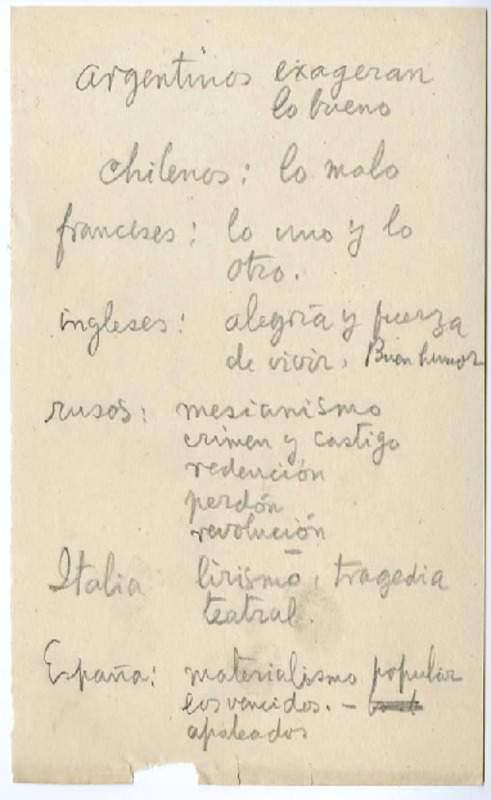 argentinos exageran
lo bueno
chilenos: lo malo
franceses: lo uno y lo
otro.
ingleses: alegría y fuerza
de vivir. Buen humor
rusos: mesianismo
crimen y castigo
redención
perdón
revolución
Italia lirismo, tragedia
teatral.
España: materialismo popular
los vencidos. -
apaleados